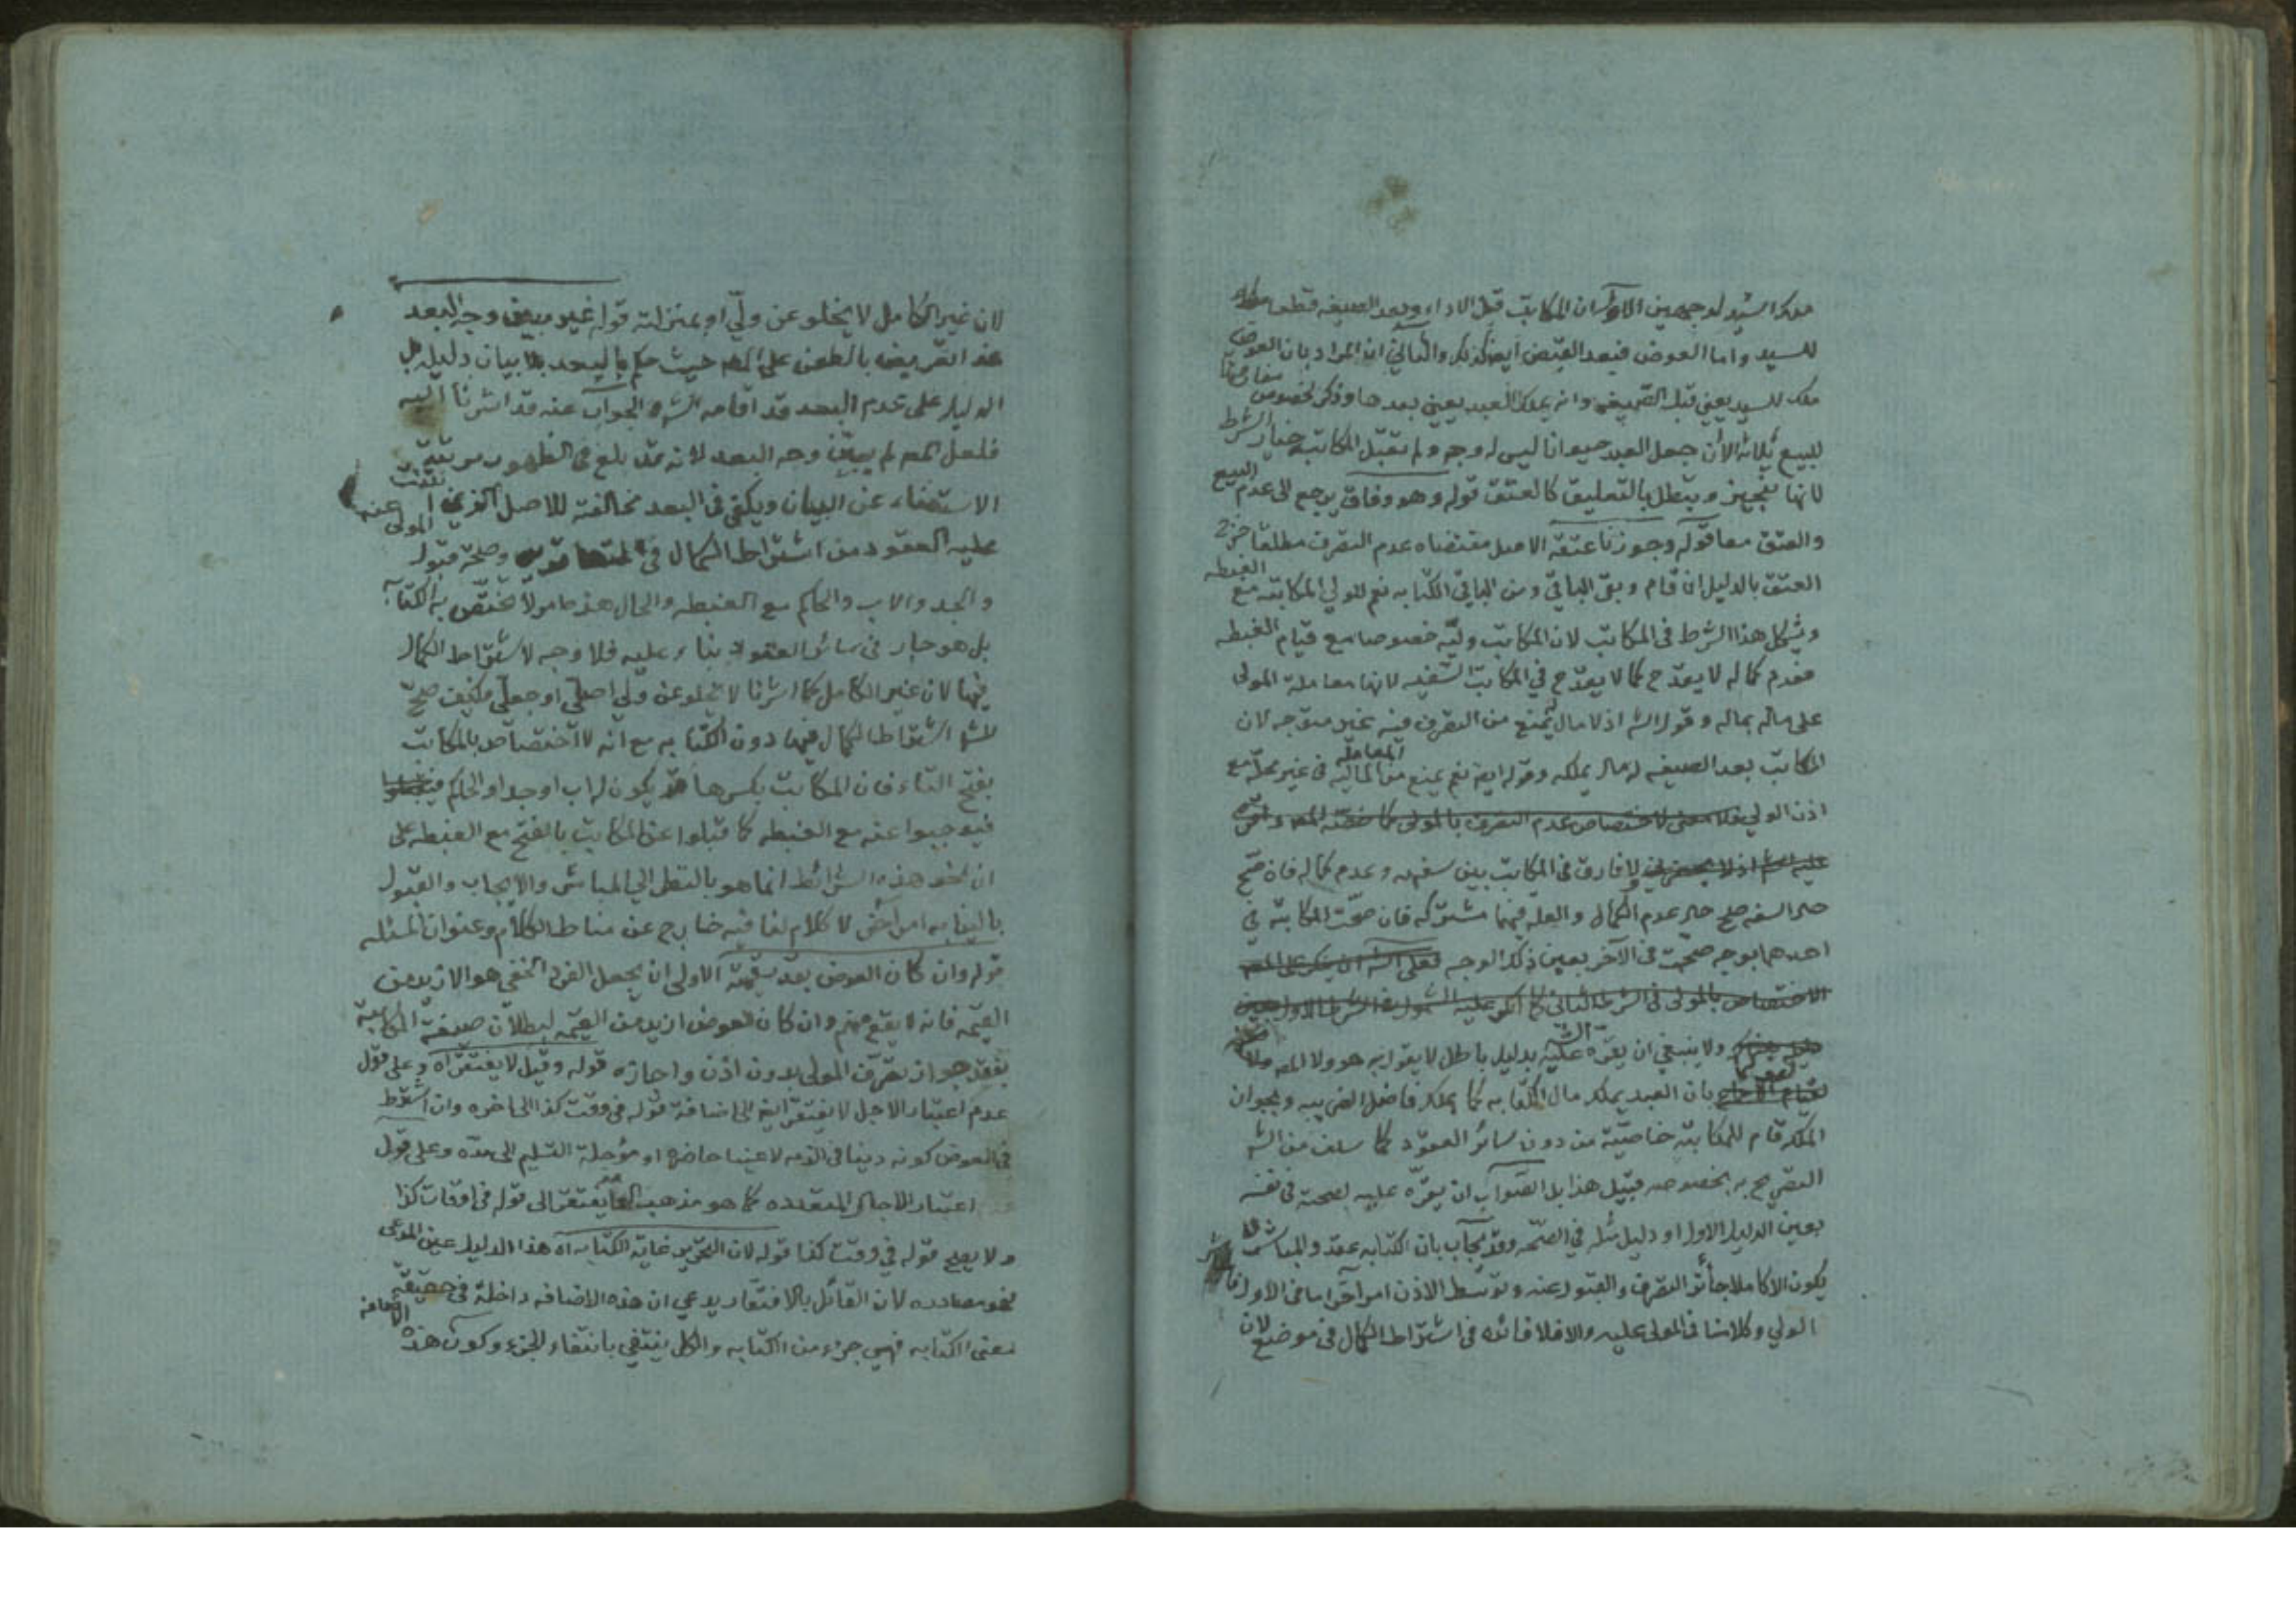 ملكا لسيد لوجهين الاول ان المكاتب قبل الاداء وبعد الصيغه قطعا
للسيد واما العوض فبعد القبض ايضا كذلك والثاني ان المراد بان العوض
ملك للسيد يعني قبل الصيغه وانه يملك العبد يعني بعدها وذكر لخصوص
للبيع ثلاثه الا ان جعل العبد حيوانا ليس له وجه ولم تقبل المكاتبه خيار الشرط
لانها تنجيز ويبطل بالتعليق كالعتق قوله وهو وفاق يرجع الى عدم البيع
والعتق معا قوله وجوزنا عتقه الاصل مقتضاه عدم التصرف مطلقا خرج
العتق بالدليل ان قام وبقى الباقي ومن الباقي الكتابه نعم للولي المكاتبه مع الغبطه
ويشكل هذا الشرط في المكاتب لان المكاتب وليه خصوصا مع قيام الغبطه
فعدم كماله لا يقدح كما لا يقدح في المكاتب السفيه لانها معاملة المولى
على ماله بماله وقوله الش اذ لا مال له يمنع من التصرف فيه غير متوجه لان
المكاتب بعد الصيغه له مال يملكه وقوله ايض نعم يمنع من المعاملة الماليه في غير محله مع
اذن الولي فلا معنى لاختصاص عدم التصرف بالمولى كما خصه المص
ولا فارق في المكاتب بين سفهه وعدم كماله فان صح
حال السفه صح حال عدم الكمال والعله فيهما مشتركه فان صحت المكاتبه في
احدهما بوجه صحت في الآخر بعين ذلك الوجه فعلى الش ان ينكر على المص
الاختصاص بالمولى في الشرط الثاني كما انكر عليه الشمول في الشرط الاول
ولا ينبغي ان يقره الش عليه بدليل باطل لا يقول به هو ولا المص
بان العبد يملك مال الكتابه كما يملك فاضل الضريبه وبجواز
الملك قام للمكاتبه خاصيته من دون سائر العقود كما سلف من الش
التصريح به بخصوصه قبيل هذا بل الصواب ان يقره عليه لصحته في نفسه
بعين الدليل الاول او دليل مثله في الصحه وقد يجاب بان الكتابه عقد والمباشر لا
يكون الا كاملا جائز التصرف والقبول عنه وتوسط الاذن امر آخر اما في الاول
الولي وكلامنا في المولى عليه والا فلا فائده في اشتراط الكمال في موضع لان
لان غير الكامل لا يخلو عن ولي او بمنزلته قوله غير مبين وجه البعد
هذا تعريض بالطعن على المص حيث حكم بالبعد بلا بيان دليله بل
الدليل على عدم البعد قد اقامه الش والجواب عنه قد اشرنا اليه
فلعل المص لم يبين وجه البعد لانه مما بلغ في الظهور مرتبة
الاستغناء عن البيان ويكفي في البعد مخالفته للاصل الذي
عليه العقود من اشتراط الكمال في المتعاقدين وصلحة قبول المولى عنه
والجد والاب والحاكم مع الغبطه والحال هذه مما لا تختص به الكتابة
بل هو جار في سائر العقود بناء عليه فلا وجه لاشتراط الكمال
فيها لان غير الكامل كما اشرنا لا يخلو عن ولي اصلي او جعلي فكيف صح
للش اشتراط الكمال فيها دون الكتابه مع انه لا اختصاص بالمكاتب
بفتح التاء فان المكاتب بكسرها قد يكون له اب او جد او الحاكم
فيوجبوا عنه مع الغبطه كما قبلوا عن المكاتب بالفتح مع الغبطه على
ان نحو هذه الشرائط انما هو بالنظر الى المباشر والايجاب والقبول
بالنيابه امر آخر لا كلام لنا فيه خارج عن مناط الكلام وعنوان المسئله
قوله وان كان العوض بقدر قيمته الاولى ان يجعل الفرد الخفي هو الازيد من
القيمه فانه لا يقع منهم وان كان العوض ازيد من القيمه لبطلان صيغة المكاتبة
بفقد جواز تصرف المولى بدون اذن واجازه قوله وقيل لا يفتقر اه وعلى قول
عدم اعتبار الاجل لا يفتقر ايض الى اضافة قوله في وقت كذا الى اخره وان اشترط
في العوض كونه دينا في الذمه لا عينا حاضره او مؤجلة التسليم الى مدة وعلى قول
اعتبار الاجال المتعدده كما هو مذهب العامه يفتقر الى قوله في اوقات كذا
ولا يصح قوله في وقت كذا قوله لان التحرير غاية الكتابه اه هذا الدليل عين المدعى
فهو مصادره لان القائل بالافتقار يدعي ان هذه الاضافه داخلة في حقيقة
معنى الكتابه فهي جزء من الكتابه والكل ينتفي بانتفاء الجزء وكون هذه الاضافه